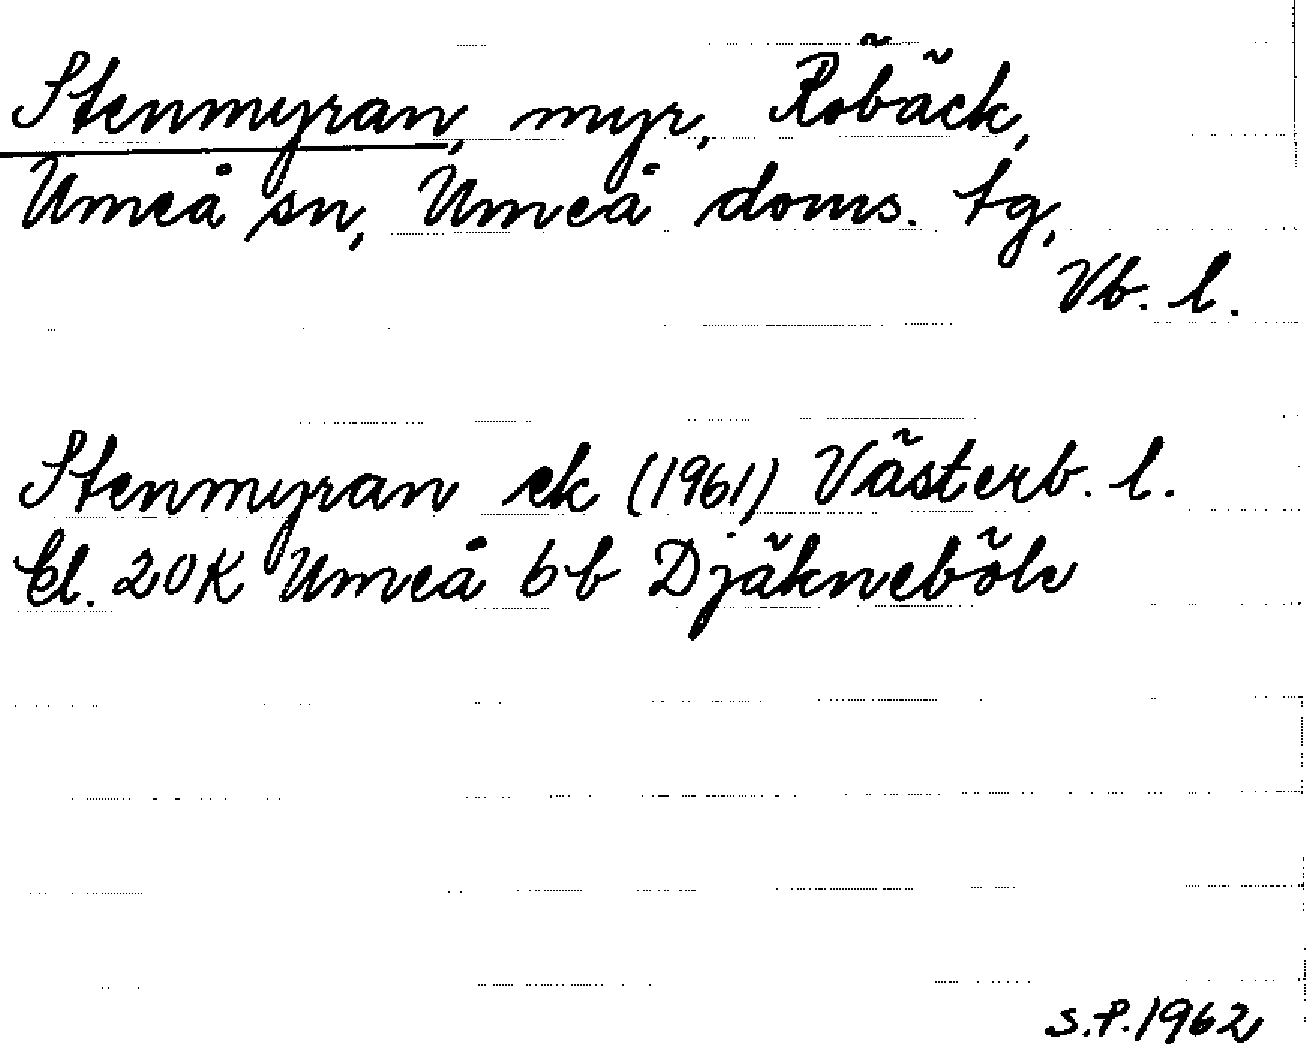 Stenmyran, myr, Röbäck,
Umeå sn, Umeå doms. tg,
Vb. l.
Stenmyran ek (1961) Västerb. l.
bl. 20K Umeå 6b Djäkneböle
S.P. 1962